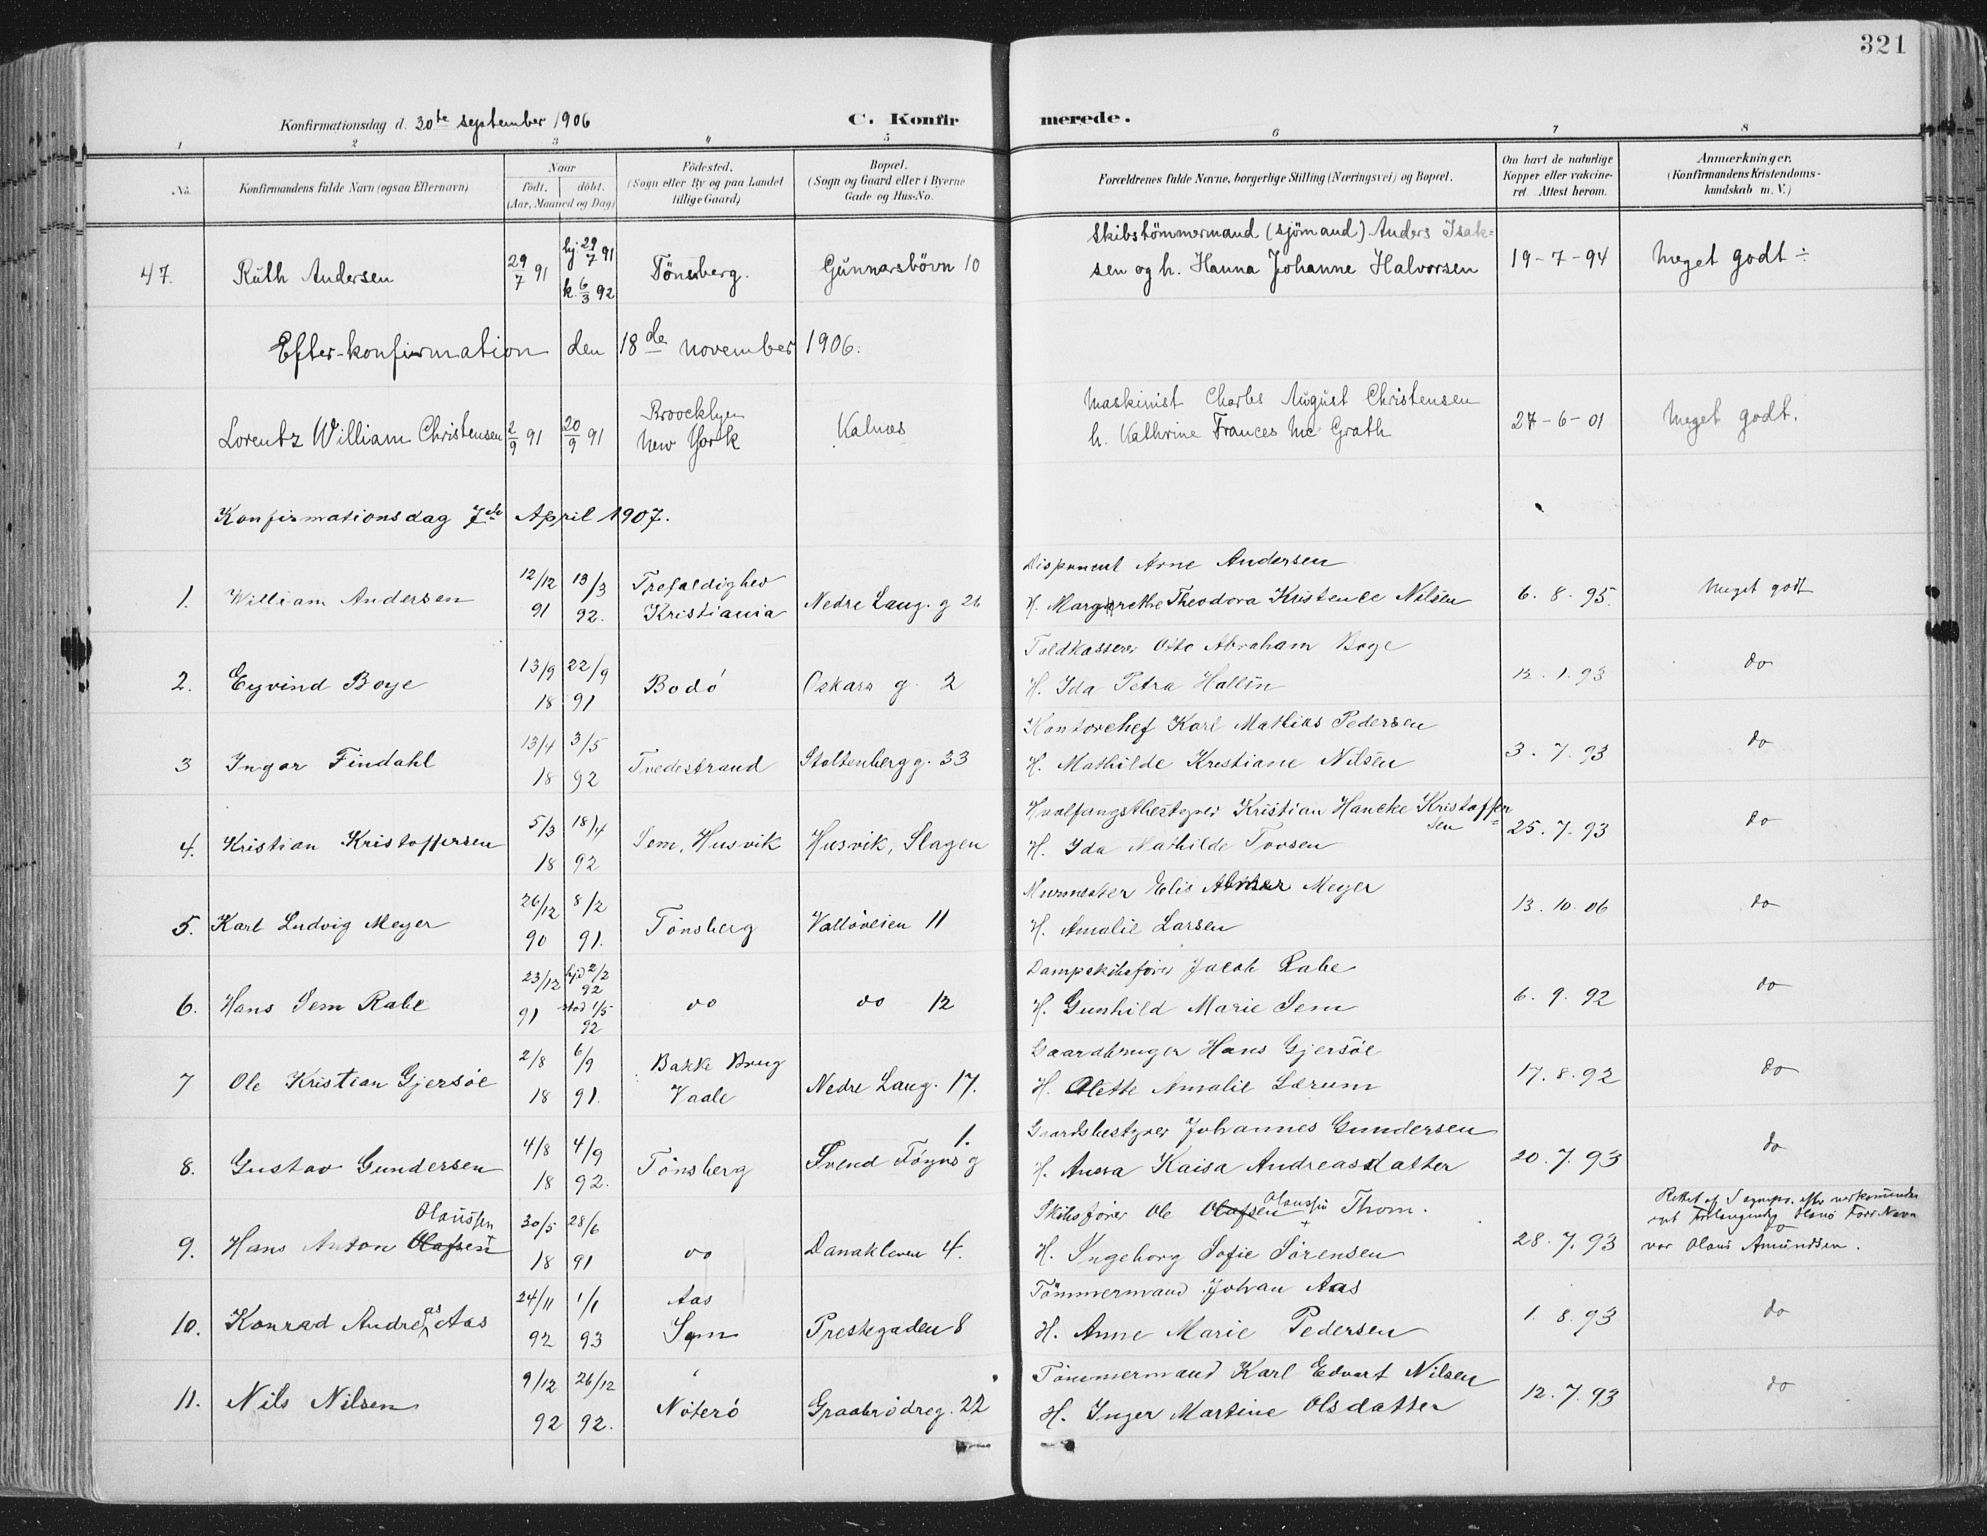 321
Konfirmationsdag d. 30te september 1906
C. Konfirmerede.
1 2 3 4 5 6 7 8
No.
Konfirmandens fulde Navn (ogsaa Efternavn)
Naar
født. døbt.
(Aar, Maaned og Dag)
Fødested.
(Sogn eller By og paa Landet
tillige Gaard)
Bopæl.
(Sogn og Gaard eller i Byerne
Gade og Hus-No.
Forældrenes fulde Navne, borgerlige Stilling (Næringsvei) og Bopæl.
Om havt de naturlige
Kopper eller vakcine-
ret Attest herom.
Anmærkninger.
(Konfirmandens Kristendoms-
kundskab m. V.)
47. Ruth Andersen 29/7 91 hj 29/7 91 k. 6/3 92 Tönsberg. Gunnarsbövn 10
Skibstömmermand (sjömand) Anders Isak-
sen og h. Hanna Johanne Halvorsen 19-7-94 Meget godt ÷
Efter-konfirmation den 18de november 1906.
Lorentz William Christensen 2/9 91 20/9 91 Broocklyn
New York Kalnes
Maskinist Charles August Christensen
h. Kathrine Frances Mc Grath 27-6-01 Meget godt.
Konfirmationsdag 7de April 1907.
1. William Andersen 12/12 91 13/3 92. Trefoldighed
Kristiania Nedre Lang. g 26
Disponent Arne Andersen
H. Margarethe Theodora Kristence Nilsen 6. 8. 95. Meget godt
2. Eyvind Boye 13/9 22/9
18 91 Bodó Oskars g. 2
Toldkasserer Otto Abraham Boye
H. Ida Petra Hallin 12. 1. 93 do
3 Ingar Findahl 13/4 3/5
18 92 Tvedestrand Stoltenbergg. 33
Kontorchef Karl Mathias Pedersen
H. Mathilde Kristiane Nilsen 3. 7. 93 do
4. Kristian Kristoffersen 5/3 18/4
18 92 Sem, Husvik Husvik, Slagen
Hvalfangstbestyrer Kristian Hancke Kristoffer=
sen
H. Ida Mathilde Torsen 25. 7. 93 do
5. Karl Ludvig Meyer 26/12 8/2
90 91. Tónsberg Vallöveien 11
Murmester Elis Meyer
H. Amalie Larsen 13. 10. 06 do
6. Hans Sem Rabe 23/12 91 hjd 2/2 92 stad 1/5 92 do do 12
Dampskibsfører Jacob Rabe
H. Gunhild Marie Sem 6. 9. 92 do
7 Ole Kristian Gjersóe 2/8 6/9
18 91. Bakke Brug
Vaale Nedre Lang. 17.
Gaardbruger Hans Gjersóe
H. Olette Amalie Lærum 17. 8. 92 do
8. Gustav Gundersen 4/8 4/9
18 92. Tónsberg Svend Föyns g 1.
Gaardsbestyrer Johannes Gundersen
H. Anna Kaisa Andreasdatter 20. 7. 93 do
9. Hans Anton Olafsen Olaussen 30/5 28/6
18 91 do Danakleven 4.
Skibsfører Ole Olafsen Olaussen Thom.
H. Ingeborg Sofie Sørensen 28. 7. 93
var Olaus Amundsen. do
10. Konrad Andreas Aas 24/11 1/1
92 93 Aas
Sem Prestegaden 8
Tömmermand Johan Aas
H. Anne Marie Pedersen 1. 8. 93 do
11. Nils Nilsen 9/12 26/12
92 92. Nóteró Graabródreg. 22
Tömmermand Karl Edvart Nilsen
H. Inger Martine Olsdatter 12. 7. 93 do